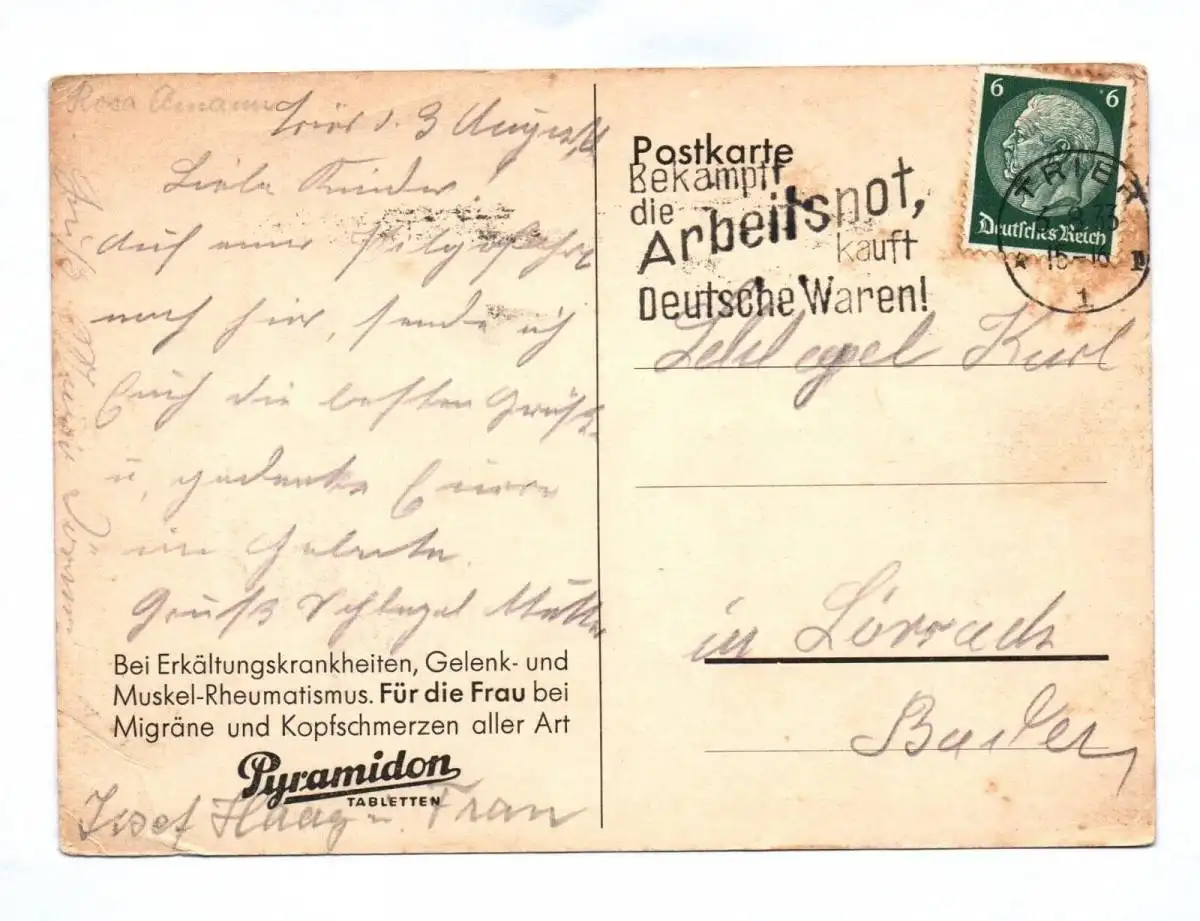 Rosa Amann
Trier d. 3 August
Liebe Kinder!
Auf einer Pilgerfahrt
nach hier, sende ich
Euch die besten Grüße
u. gedenke Euerer
im Gebete.
Gruß Schlegel Mutter
Bei Erkältungskrankheiten, Gelenk- und
Muskel-Rheumatismus. Für die Frau bei
Migräne und Kopfschmerzen aller Art
Pyramidon
TABLETTEN
Josef Haag u. Frau
Postkarte
Bekämpft
die Arbeitsnot,
kauft
Deutsche Waren!
6 6
Deutsches Reich
TRIER
8.33
1
Schlegel Karl
in Lörrach
Baden